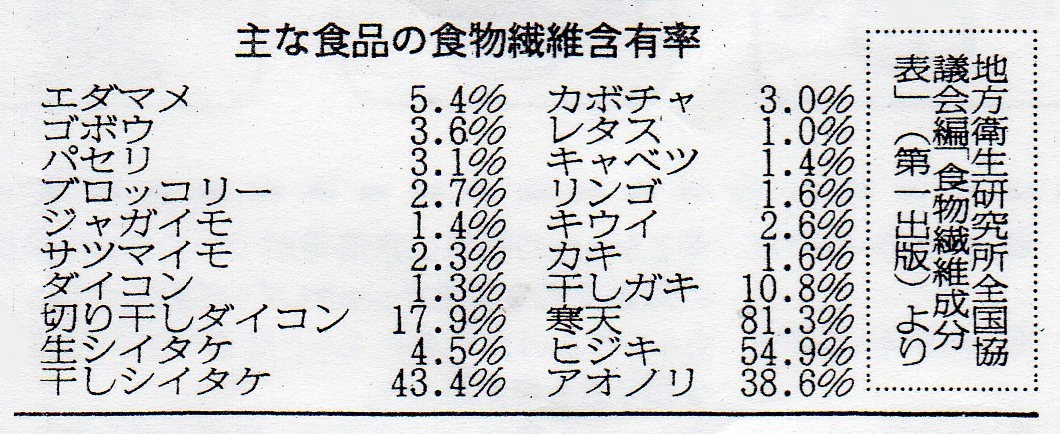 主な食品の食物繊維含有率
エダマメ 5.4%
ゴボウ 3.6%
パセリ 3.1%
ブロッコリー 2.7%
ジャガイモ 1.4%
サツマイモ 2.3%
ダイコン 1.3%
切り干しダイコン 17.9%
生シイタケ 4.5%
干しシイタケ 43.4%
カボチャ 3.0%
レタス 1.0%
キャベツ 1.4%
リンゴ 1.6%
キウイ 2.6%
カキ 1.6%
干しガキ 10.8%
寒天 81.3%
ヒジキ 54.9%
アオノリ 38.6%
地方衛生研究所全国協
議会編「食物繊維成分
表」（第一出版）より